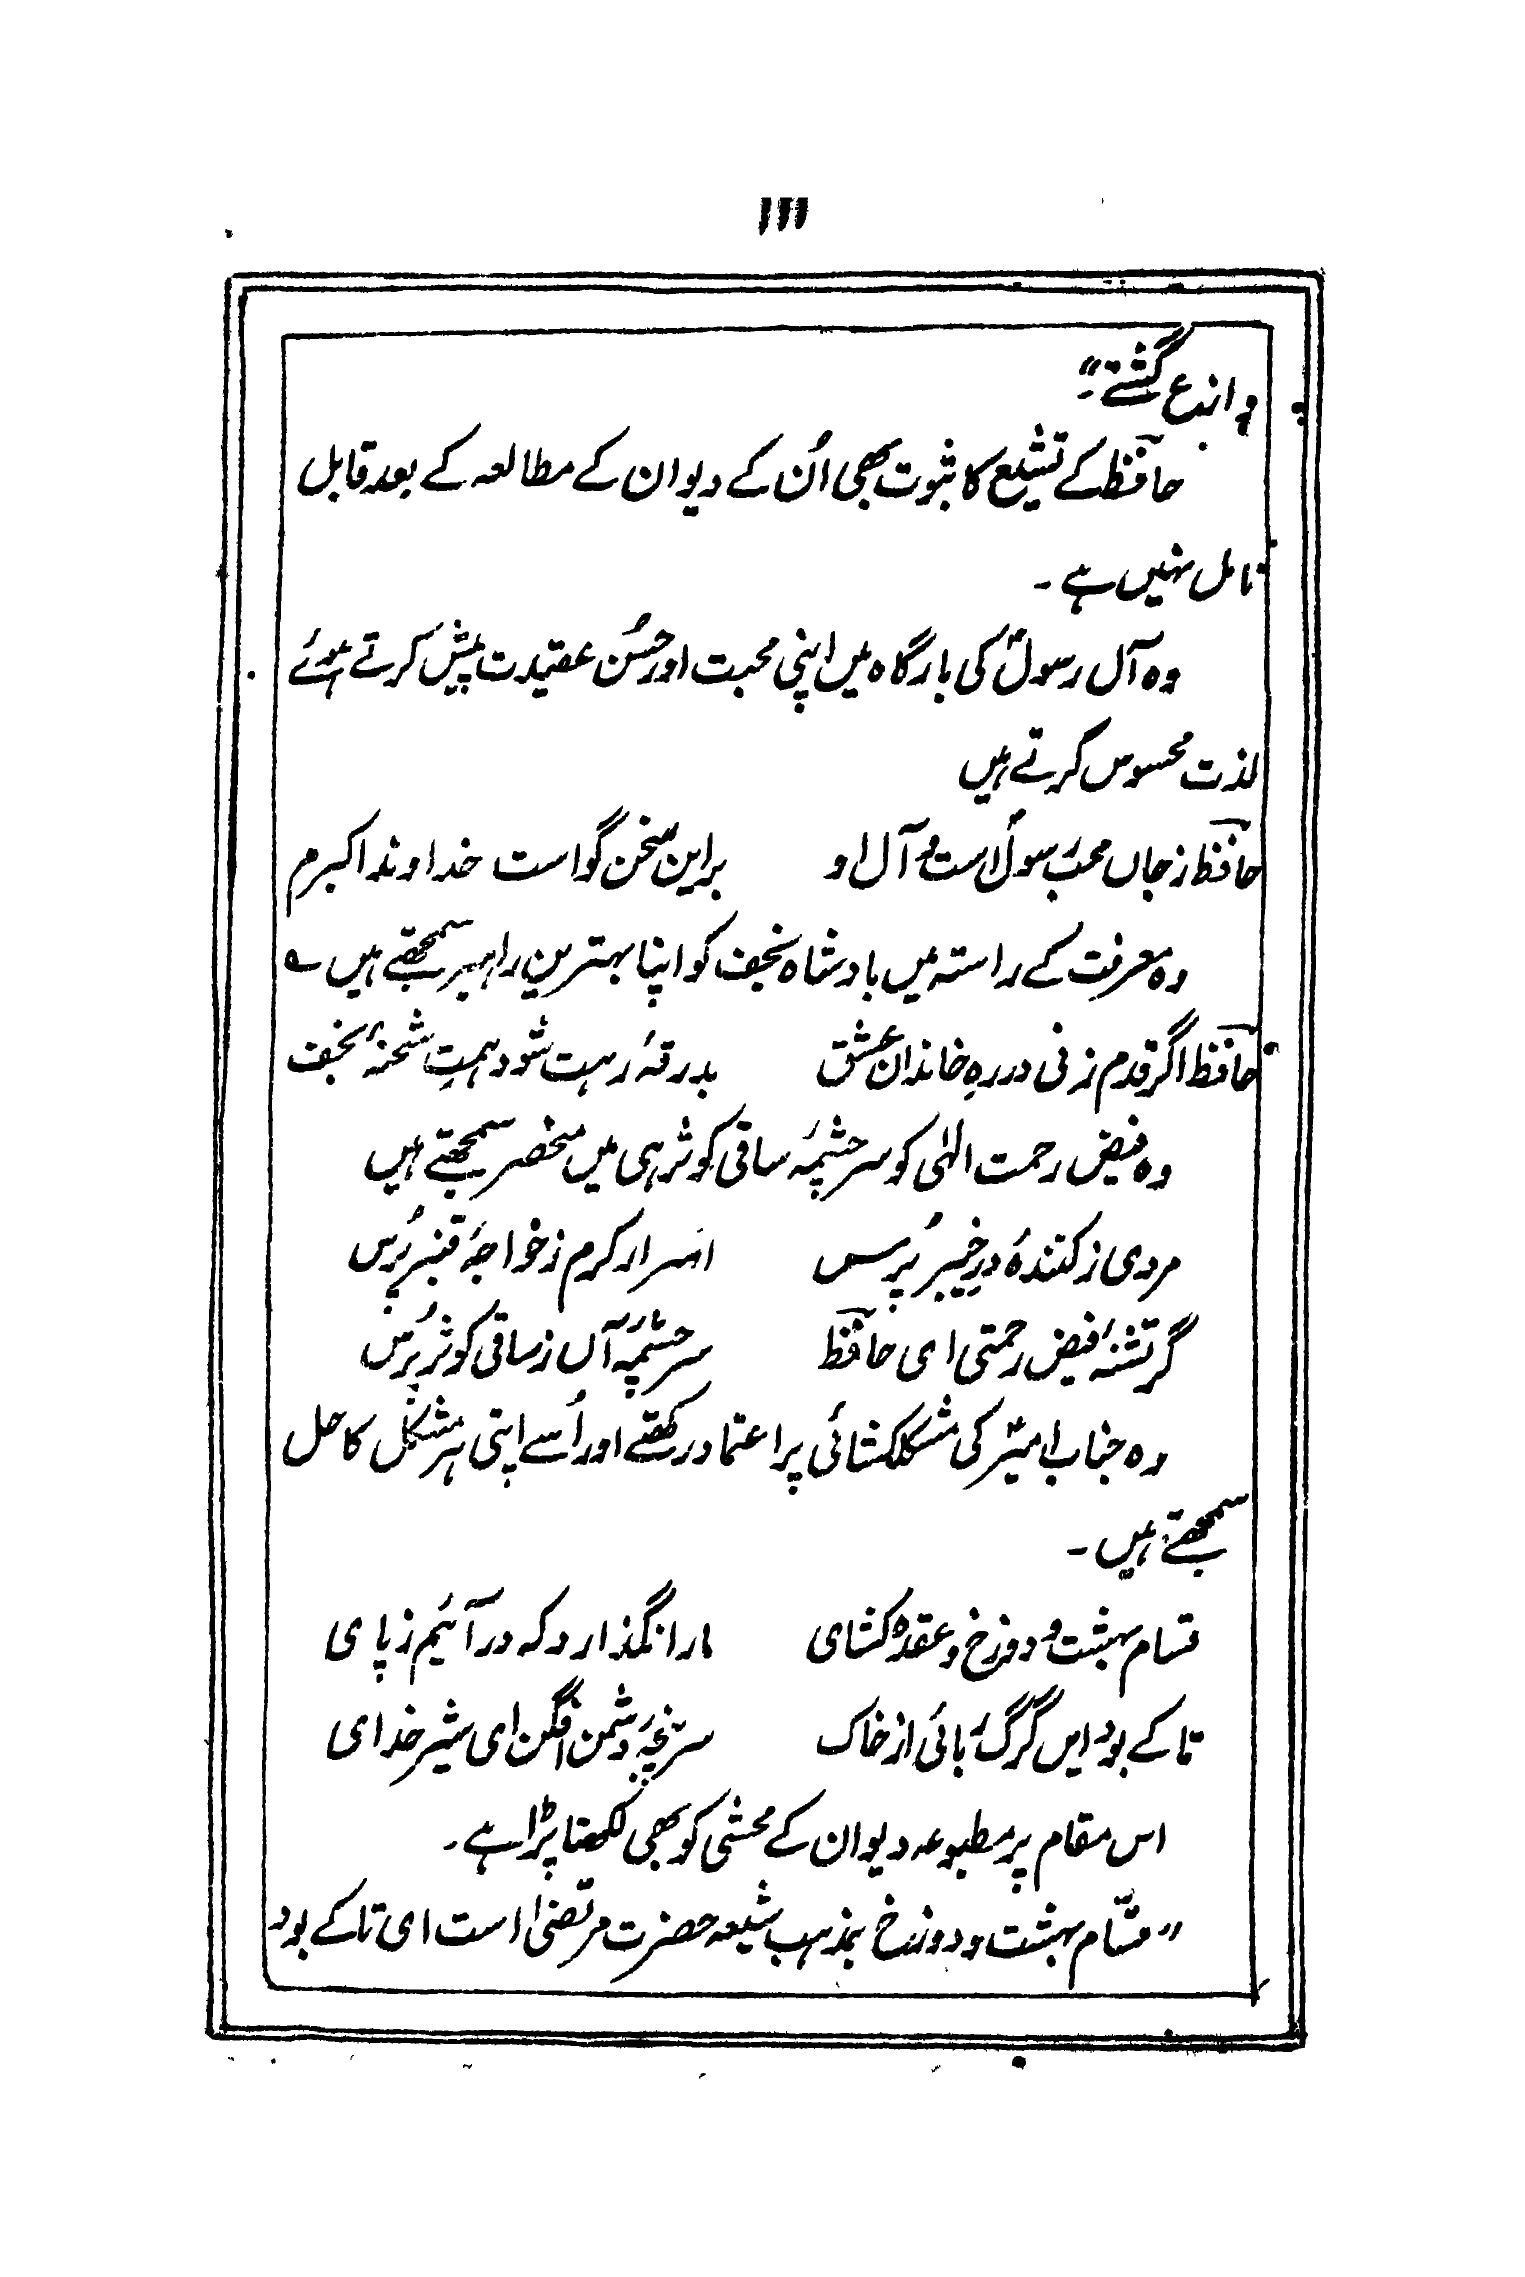 ۱۱۱
و ابدع گشتے۔"
حافظؔ کے تشیع کا ثبوت بھی اُن کے دیوان کے مطالعہ کے بعد قابل
تامل نہیں ہے ۔
وہ آل رسولؐ کی بارگاہ میں اپنی محبت اور حُسن عقیدت پیش کرتے ہوئے
لذت محسوس کرتے ہیں
حافظؔ ز جاں محب رسولؐ است و آل او براین سخن گواست خداوند اکبرم
وہ معرفت کے راستہ میں بادشاہ نجف کو اپنا بہترین راہبر سمجھتے ہیں ؎
حافظؔ اگر قدم زنی در رہِ خاندان عشق بدرقۂ رہت شود ہمتِ شحنۂ نجف
وہ فیض رحمت الٰہی کو سرچشمۂ ساقی کوثر ہی میں منحصر سمجھتے ہیں
مردی ز کنندۂ درِ خیبر پُرس اسرار کرم ز خواجۂ قنبر پُرس
گر تشنۂ فیض رحمتی ای حافظؔ سرچشمۂ آں ز ساقی کوثر پُرس
وہ جناب امیرؑ کی مشکلکشائی پر اعتماد رکھتے اور اُسے اپنی ہر مشکل کا حل
سمجھتے ہیں ۔
قسام بہشت و دوزخ و عقدہ کشای مارا نگذارد کہ در آئیم ز پای
تا کے بود ایں گرگ رُبائی از خاک سرپنجۂ دشمن افگن ای شیر خدای
اس مقام پر مطبوعہ دیوان کے محشی کو بھی لکھنا پڑا ہے ۔
"قسّام بہشت و دوزخ بمذہب شیعہ حضرت مرتضیٰ است ای تا کے بود